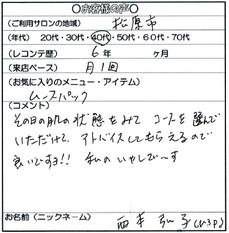 ○お客様の声○
(ご利用サロンの地域) 松原市
(年代) 20代・30代・40代・50代・60代・70代
(レコンテ歴) 6年 ヶ月
(来店ペース) 月1回
(お気に入りのメニュー・アイテム)
ムースパック
(コメント)
その日の肌の状態をみて コースを選んで
いただけて、アドバイスしてもらえるので
良いですヨ!! 私のいやしで〜す
お名前(ニックネーム) 西本